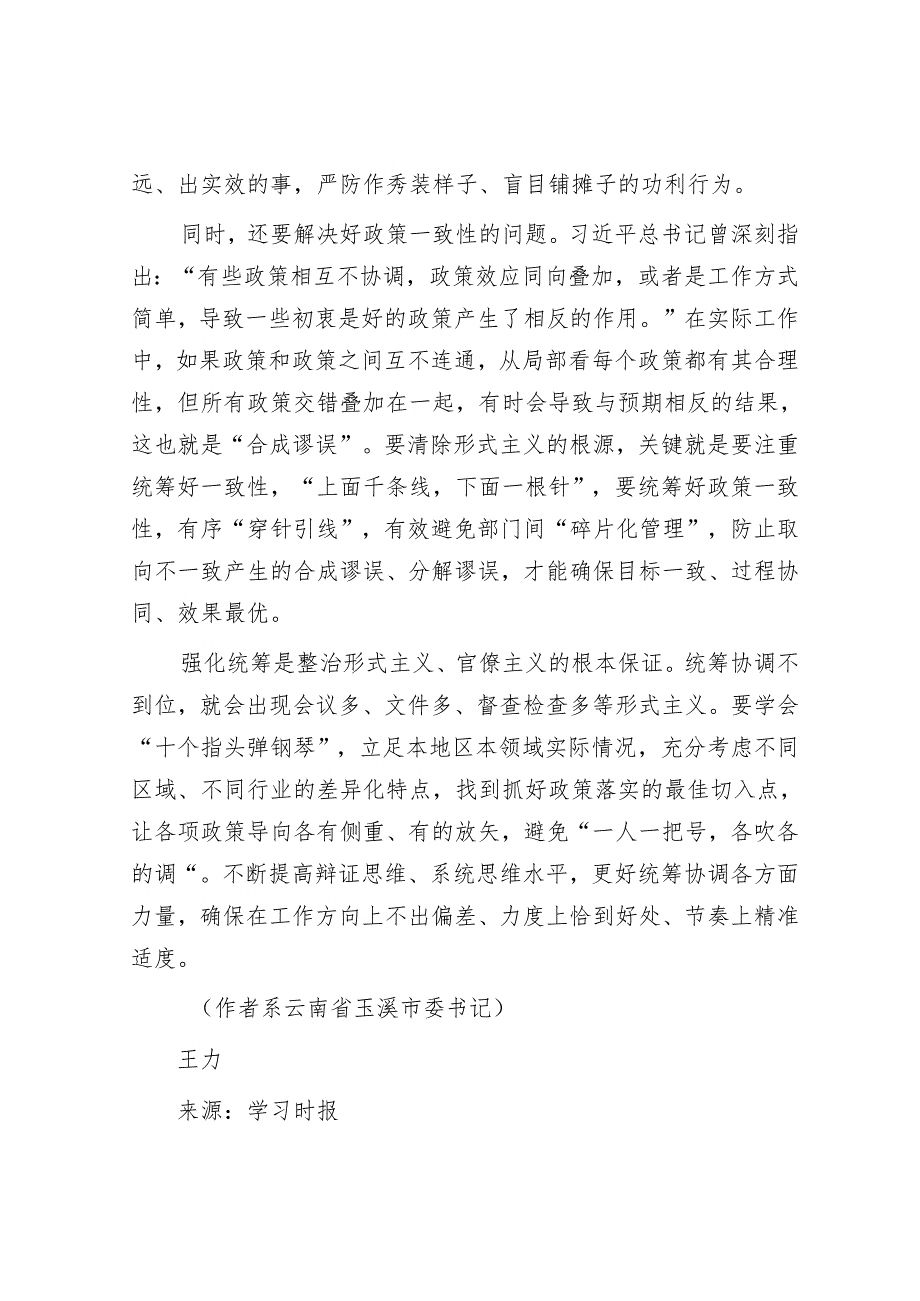 远、出实效的事，严防作秀装样子、盲目铺摊子的功利行为。
同时，还要解决好政策一致性的问题。习近平总书记曾深刻指
出：“有些政策相互不协调，政策效应同向叠加，或者是工作方式
简单，导致一些初衷是好的政策产生了相反的作用。”在实际工作
中，如果政策和政策之间互不连通，从局部看每个政策都有其合理
性，但所有政策交错叠加在一起，有时会导致与预期相反的结果，
这也就是“合成谬误”。要清除形式主义的根源，关键就是要注重
统筹好一致性，“上面千条线，下面一根针”，要统筹好政策一致
性，有序“穿针引线”，有效避免部门间“碎片化管理”，防止取
向不一致产生的合成谬误、分解谬误，才能确保目标一致、过程协
同、效果最优。
强化统筹是整治形式主义、官僚主义的根本保证。统筹协调不
到位，就会出现会议多、文件多、督查检查多等形式主义。要学会
“十个指头弹钢琴”，立足本地区本领域实际情况，充分考虑不同
区域、不同行业的差异化特点，找到抓好政策落实的最佳切入点，
让各项政策导向各有侧重、有的放矢，避免“一人一把号，各吹各
的调“。不断提高辩证思维、系统思维水平，更好统筹协调各方面
力量，确保在工作方向上不出偏差、力度上恰到好处、节奏上精准
适度。
（作者系云南省玉溪市委书记）
王力
来源：学习时报